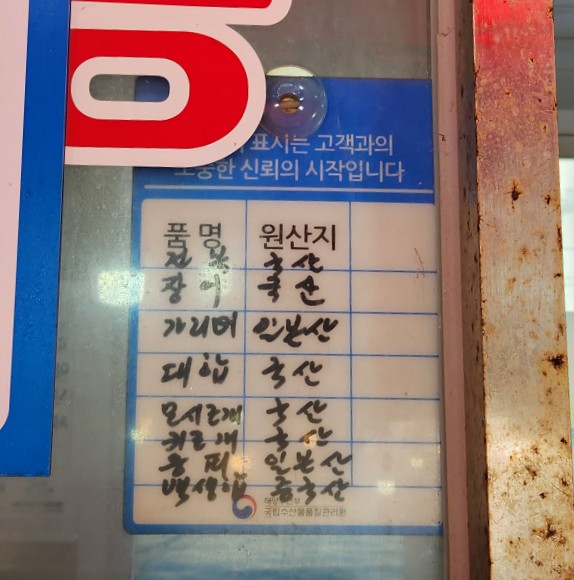 표시는 고객과의
소중한 신뢰의 시작입니다
품명 원산지
전복 국산
장어 국산
가리비 일본산
대합 국산
모시조개 국산
키조개 국산
홍피 일본산
백생합 중국산
해양수산부
국립수산물품질관리원